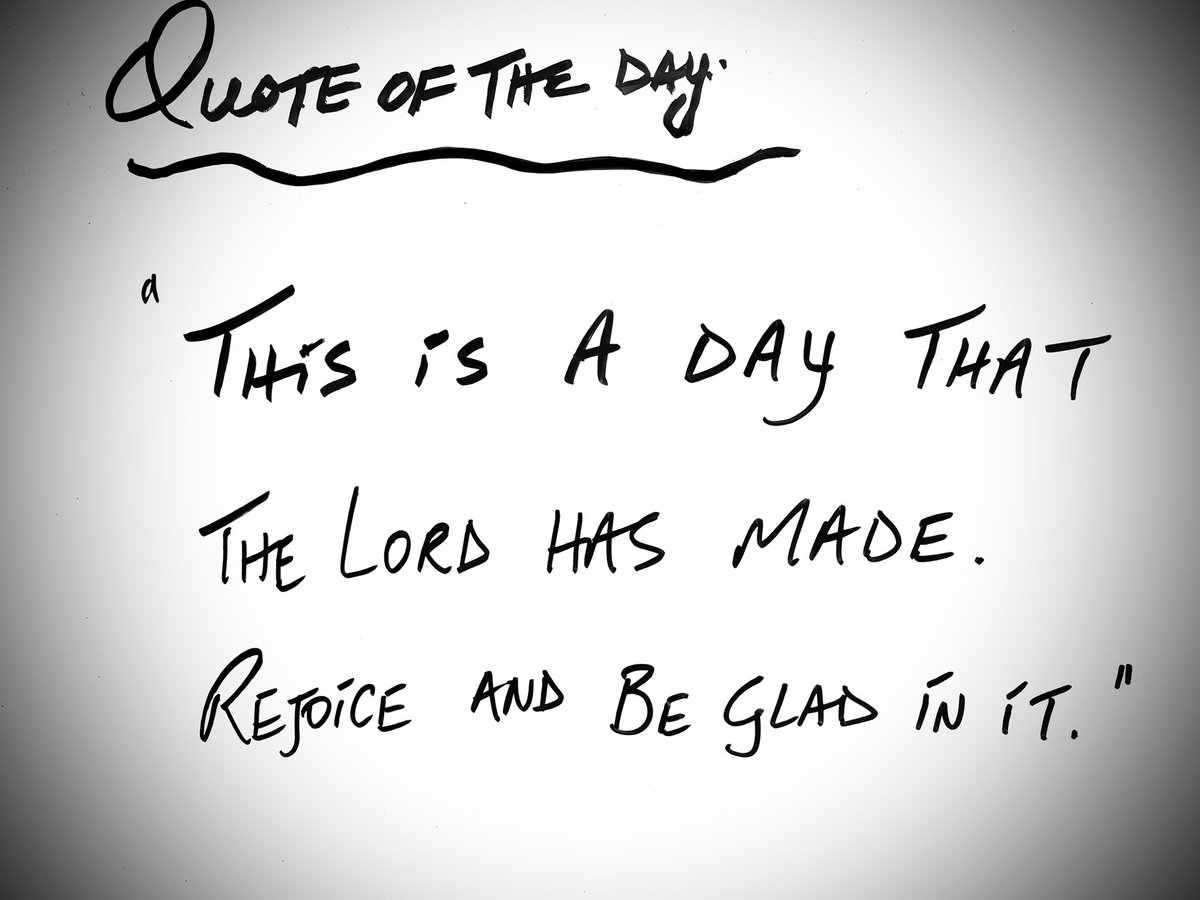 QUOTE OF THE DAY.
"THiS iS A DAY THAT
THE LORD HAS MADE.
REJOiCE AND BE GLAD iN iT."